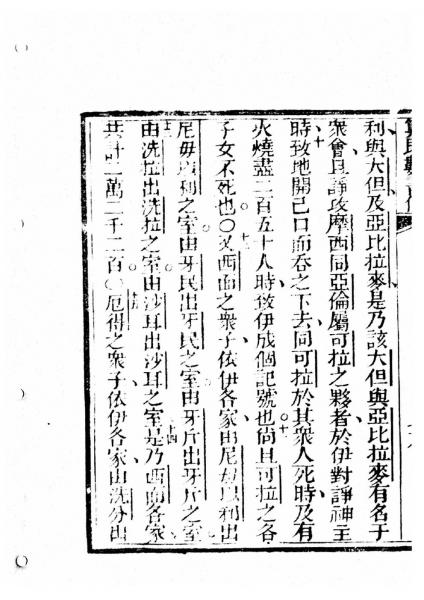 利與大但及亞比拉麥是乃該大但與亞比拉麥有名于
衆會且諍攻摩西同亞倫屬可拉之夥者於伊對諍神主
時致地開己口而吞之下去同可拉於其衆人死時及有
火燒盡二百五十人時致伊成個記號也尙且可拉之各
子女不死也○又西面之衆子依伊各家由尼毋以利出
尼毋以利之室由牙民出牙民之室由牙斤出牙斤之室
由洗拉出洗拉之室由沙耳出沙耳之室是乃西面各家
共計二萬二千二百○厄得之衆子依伊各家由洗分出